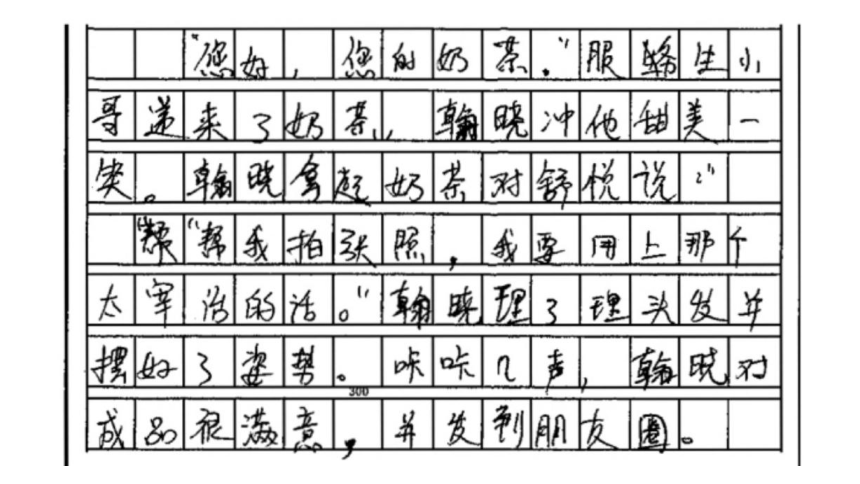 “您好，您的奶茶。”服务生小
哥递来了奶茶，翰晓冲他甜美一
笑。翰晓拿起奶茶对舒悦说：“
“帮“帮我拍张照，我要用上那个
太宰治的话。”翰晓理了理头发并
摆好了姿势。咔咔几声，翰晓对
300
成品很满意，并发到朋友圈。